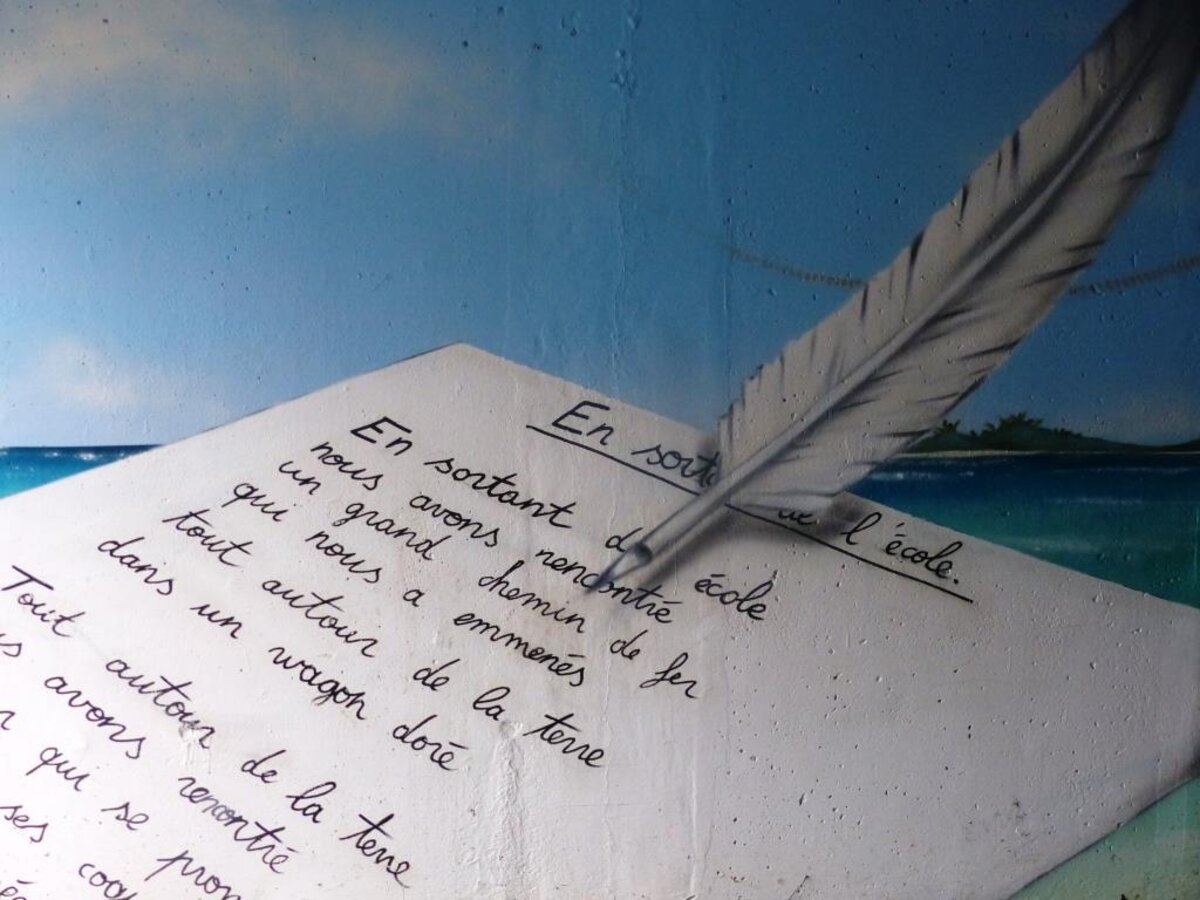 En sorta l'école.
En sortant d école
nous avons rencontré
un grand chemin de fer
qui nous a emmenés
tout autour de la terre
dans un wagon doré
Tout autour de la terre
us avons rencontré
r qui se prom
ses coq